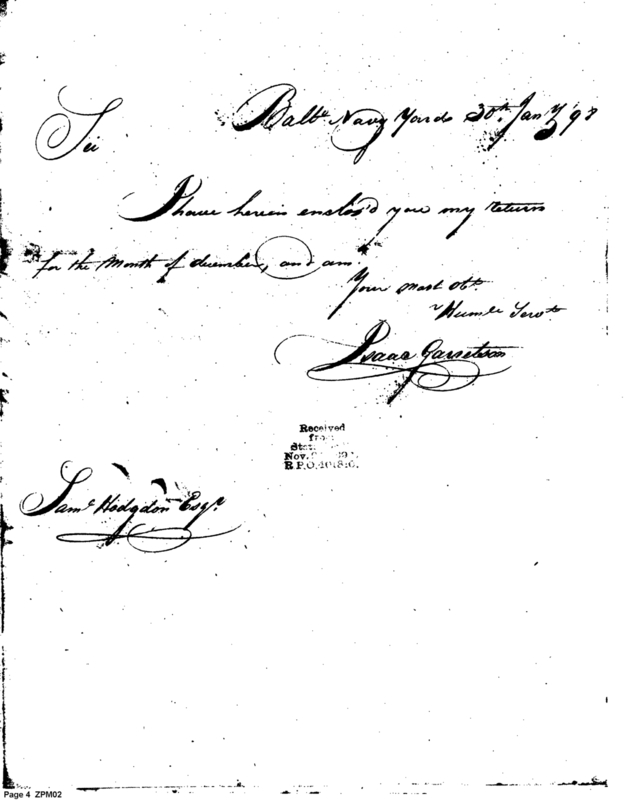 Balte Navy Yards 30th Jany 98
Sir
I have herein enclos'd you my return
for the Month of december, and am
Your most obt
Humle Servt
Isaac Garretson
Received
from
Nov.
R.P.O.
Saml Hodgdon Esqr.
Page 4 ZPM02